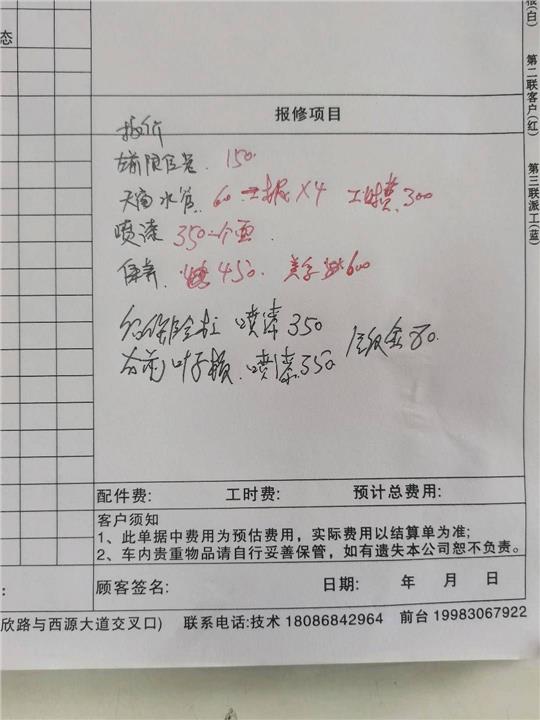 态
根(白)
第二联客户(红)
第三联派工(蓝)
报修项目
报价
左前限位器. 150.
天窗水管. 60 X4 工时费.300
喷漆 350一个面.
保养. 450. 600
喷漆 350
右前叶子板. 喷漆.350 钣金80.
配件费: 工时费: 预计总费用:
客户须知
1、此单据中费用为预估费用，实际费用以结算单为准;
2、车内贵重物品请自行妥善保管，如有遗失本公司恕不负责。
: 顾客签名: 日期: 年 月 日
欣路与西源大道交叉口) 联系电话:技术 18086842964 前台 19983067922